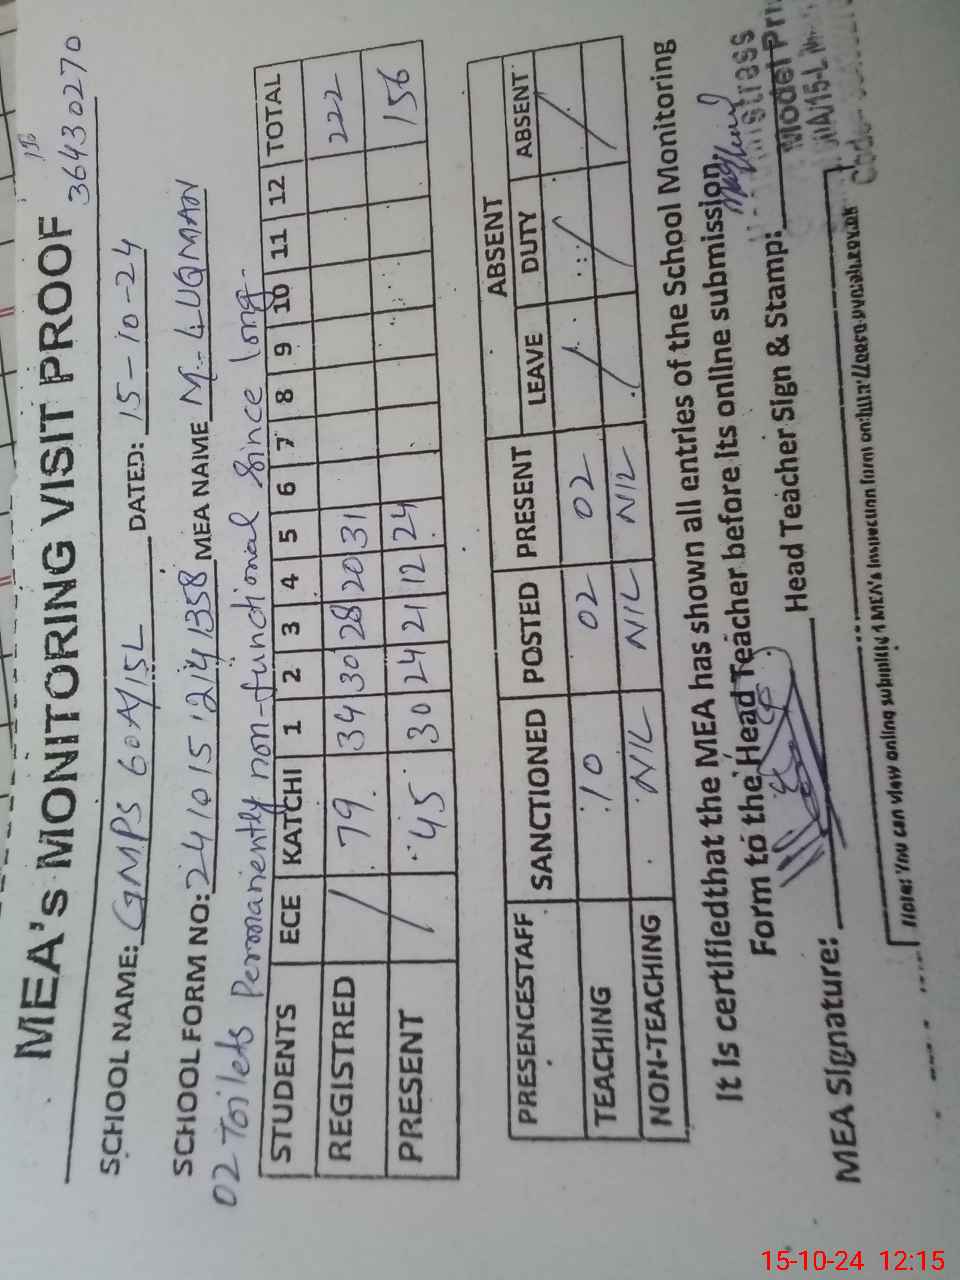 MEA's MONITORING VISIT PROOF
36430270
SCHOOL NAME: GMPS 60A/15L DATED: 15-10-24
SCHOOL FORM NO: 24101512141358 MEA NAME M. LUQMAN
02 Toilets Permanently non-functional Since long.
STUDENTS ECE KATCHI 1 2 3 4 5 6 7 8 9 10 11 12 TOTAL
REGISTRED / 79 34 30 28 20 31 222
PRESENT 45 30 24 21 12 24 156
PRESENCESTAFF SANCTIONED POSTED PRESENT ABSENT
LEAVE DUTY ABSENT
TEACHING 10 02 02 / / /
NON-TEACHING NIL NIL NIL
It is certifiedthat the MEA has shown all entries of the School Monitoring
Form to the Head Teacher before its online submission.
MEA Signature: Head Teacher Sign & Stamp:
Model Pri
Note: You can view online submitted MEA's Inspection form on:
15-10-24 12:15